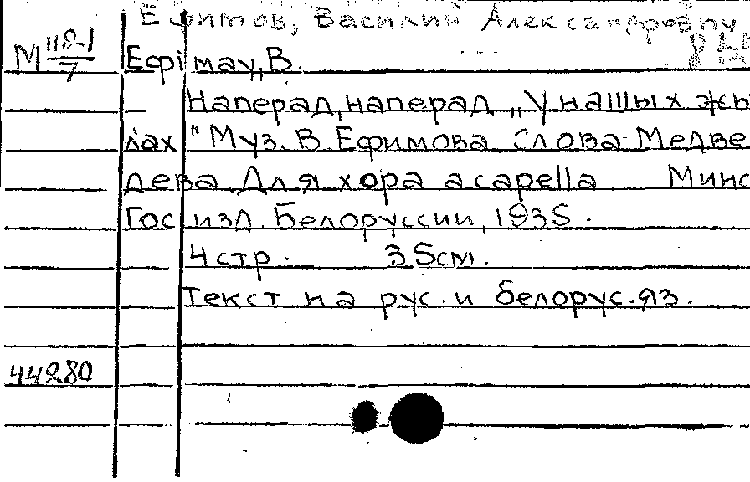 Ефимов, Василий Александрович
М 1181/7 Ефімау, В.
Наперад, наперад „У нашых жы
лах" Муз. В. Ефимова Слова Медве
дева Для хора acapella Минс
Гос изд. Белоруссии, 1935.
4 стр. 35см.
Текст на рус. и белорус. яз.
44280